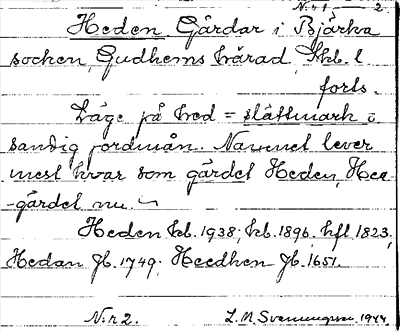 N:r 1 — 2.
Heden Gårdar i Bjärka
socken, Gudhems härad, Skb. l.
forts.
Läge på hed = slättmark i
sandig jordmån. Namnet lever
mest kvar som gärdet Heden, Hee-
-gärdet nu.
Heden kb. 1938; kb. 1896, hfl 1823,
Hedan Jb. 1749. Heedhen Jb. 1651.
N:r 2. L. M. Svenungsson. 1944.